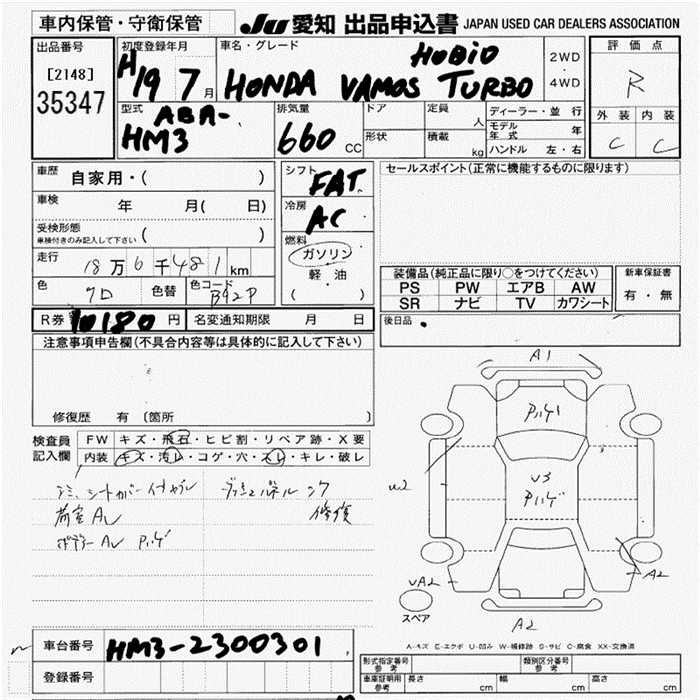 車内保管・守衛保管
JU 愛知 出品申込書 JAPAN USED CAR DEALERS ASSOCIATION
出品番号
[2148]
35347
初度登録年月
H19 7 月
車名・グレード
HOBIO
HONDA VAMOS TURBO
2WD
・
4WD
評価点
R
外装 内装
C C
型式
ABA-
HM3
排気量
660 CC
ドア
形状
定員 人
積載 kg
ディーラー・並行
モデル年式 年
ハンドル 左・右
車歴 自家用・( )
車検 年 月( 日)
受検形態
車検付きのみ記入して下さい ( )
走行 18万6千481km
色 色替 色コード B92P
シフト
FAT
冷房
AC
燃料
ガソリン
軽・油
( )
セールスポイント(正常に機能するものに限ります)
装備品(純正品に限り○をつけてください)
PS PW エアB AW
SR ナビ TV カワシート
新車保証書
有・無
R券 10180 円 名変通知期限 月 日
後日品
注意事項申告欄(不具合内容等は具体的に記入して下さい)
修復歴 有 〔箇所
検査員
記入欄
FW キズ・飛石・ヒビ割・リペア跡・X要
内装 キズ・汚レ・コゲ・穴・スレ・キレ・破レ
荷室 A
修復
A1
W2
U3
A2
UA2
スペア
A2
A-キズ E-エクボ U-凹み W-補修跡 S-サビ C-腐食 XX-交換済
車台番号 HM3-2300301
登録番号
形式指定番号
参考
類別区分番号
参考
車庫証明用
参考
長さ cm 幅 cm 高さ cm